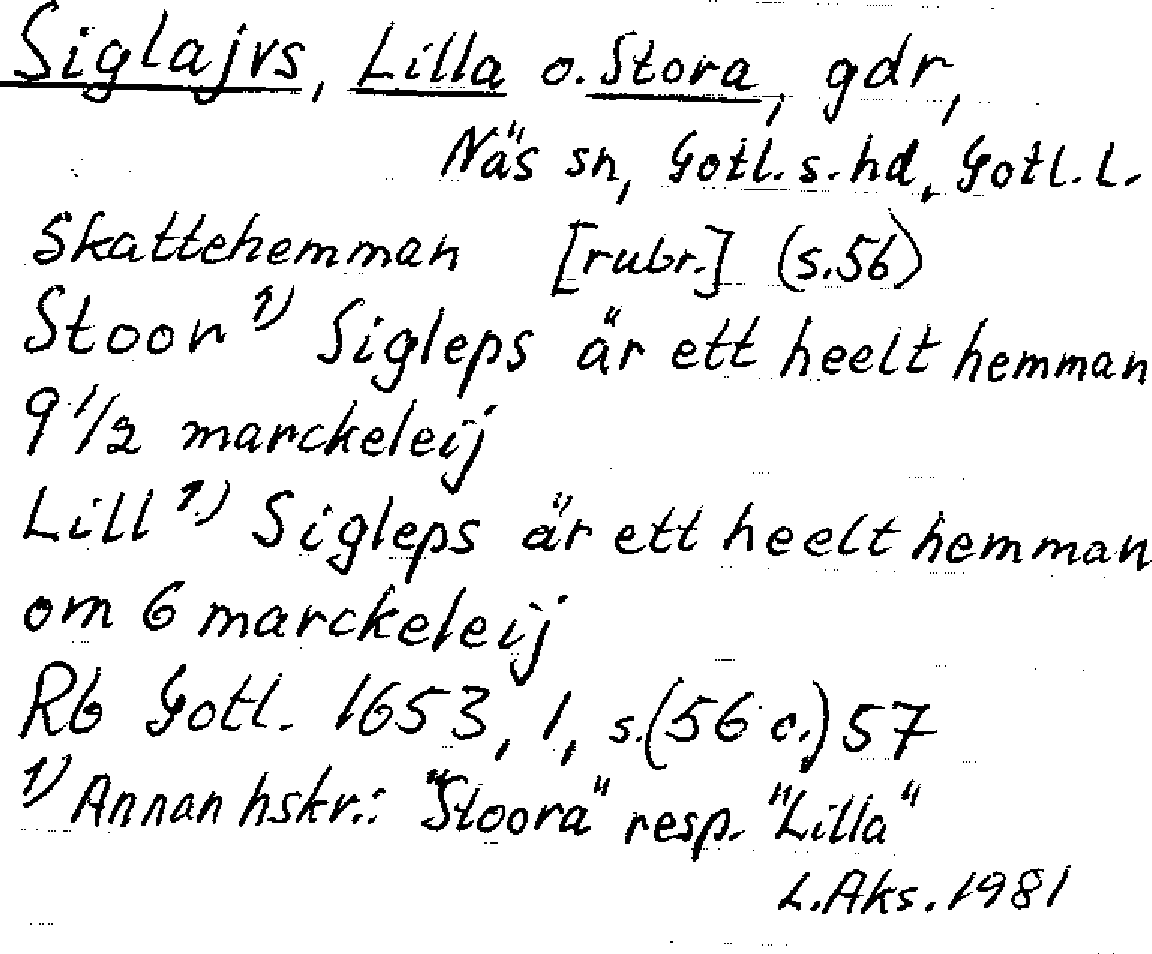 Siglajvs, Lilla o. Stora, gdr,
Näs sn, Gotl. s. hd, Gotl. l.
Skattehemman [rubr.] (s.56)
Stoor 1) Sigleps är ett heelt hemman
9 1/2 marckeleij
Lill 1) Sigleps är ett heelt hemman
om 6 marckeleij
Rb Gotl. 1653, 1, s.(56 o.) 57
1) Annan hskr.: "Stoora" resp. "Lilla"
L. Aks. 1981